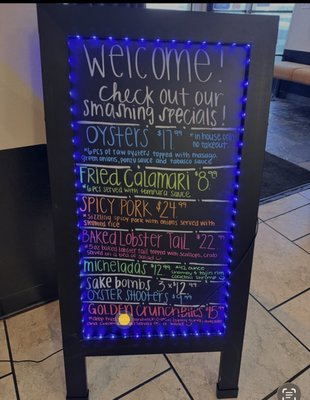 Welcome!
Check out our
smashing specials!
OYSTERS $17.99 *in house only
no takeout
*6 pcs of raw oysters topped with masago,
green onions, ponzu sauce and tabasco sauce*
Fried Calamari $8.99
*6 pcs served with tempura sauce
SPICY PORK $24.99
*Sizzling spicy pork with onions served with
steamed rice
Baked Lobster Tail $22.99
baked lobster tail topped with scallops, crab
served on a bed of
micheladas $12.99 *42 ounce
rim
cocktail shrimp
SAKE BOMBS 3 x $12
OYSTER SHOOTERS $9.99
GOLDEN CRUNCH BITES $15
deep fried
and